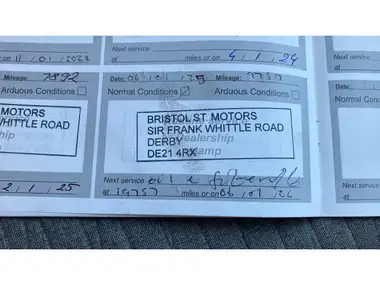 on 11/01/2023
Next service
at miles or on 4/1/24
Mileage: 7892
Arduous Conditions
MOTORS
WHITTLE ROAD
2/1/25
Date: 06/01/25 Mileage: 9757
Normal Conditions Arduous Conditions
BRISTOL ST. MOTORS
SIR FRANK WHITTLE ROAD
DERBY
DE21 4RX
dealership
stamp
Next service oil &
at 19757 miles or on 06/01/26
Date:
Normal
Next serv
at